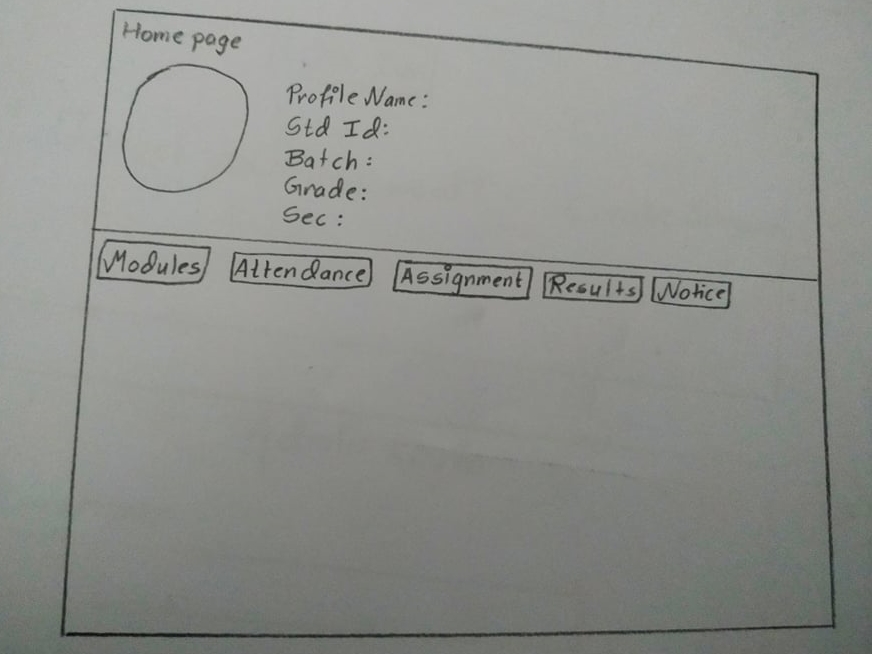 Home page
Profile Name:
Std Id:
Batch:
Grade:
Sec:
Modules Attendance Assignment Results Notice